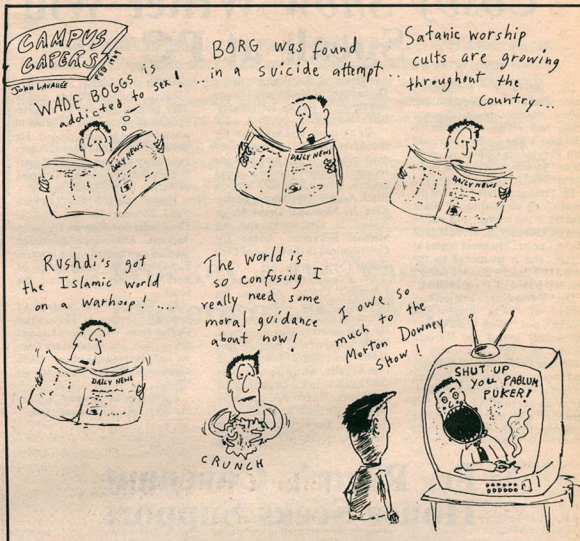 CAMPUS
CAPERS
FEB 1989
John LaVallee
WADE BOGGS is
addicted to sex!
DAILY NEWS
BORG was found
..in a suicide attempt..
DAILY NEWS
Satanic worship
cults are growing
throughout the
country...
DAILY NEWS
Rushdi's got
the Islamic world
on a warhoop! ....
DAILY NEWS
The World is
so confusing I
really need some
moral guidance
about now!
CRUNCH
I owe so
much to the
Morton Downey
Show!
SHUT UP
YOU PABLUM
PUKER!